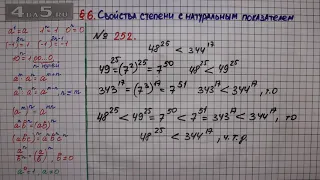 4 A 5
§6. Свойства степени с натуральным показателем
№ 252.
48²⁵ < 344¹⁷
49²⁵ = (7²)²⁵ = 7⁵⁰ 48²⁵ < 49²⁵
343¹⁷ = (7³)¹⁷ = 7⁵¹ 343¹⁷ < 344¹⁷, т.о
48²⁵ < 49²⁵ = 7⁵⁰ < 7⁵¹ = 343¹⁷ < 344¹⁷, то
48²⁵ < 344¹⁷, ч.т.д.
a¹ = a 1ⁿ = 1 0ⁿ = 0
10ⁿ = 100...0
n нулей
a⁰ = 1, a ≠ 0